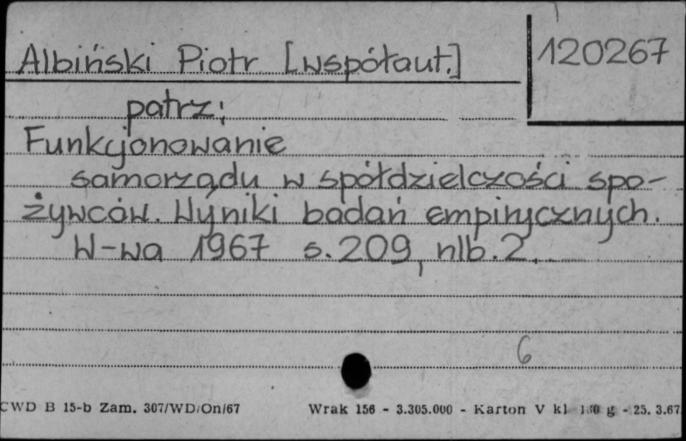 Albiński Piotr [współaut.]
120267
patrz:
Funkcjonowanie
samorządu w spółdzielczości spo-
żywców. Wyniki badań empirycznych.
W-wa 1967 s. 209, nlb. 2.
6
CWD B 15-b Zam. 307/WD/On/67 Wrak 156 - 3.305.000 - Karton V kl 180 g - 25. 3.67